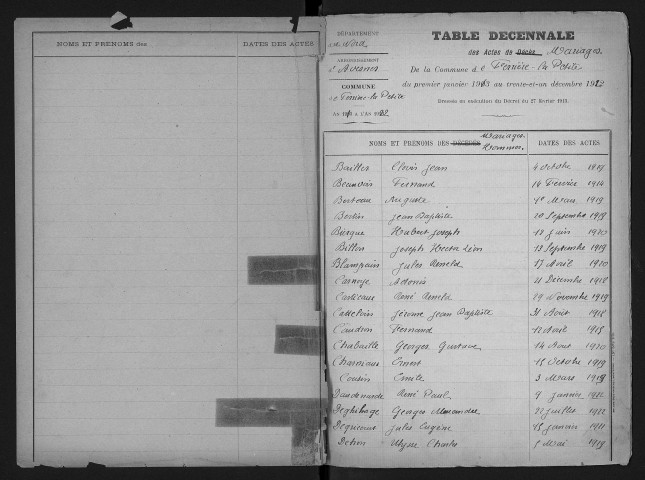 NOMS ET PRÉNOMS des
DATES DES ACTES
DÉPARTEMENT
du Nord
ARRONDISSEMENT
d'Avesnes
COMMUNE
de Ferrière-la-Petite
TABLE DÉCENNALE
des Actes de Décès Mariages
De la Commune de Ferrière-la-Petite
du premier janvier 1913 au trente-et-un décembre 1922
Dressée en exécution du Décret du 27 février 1913.
NOMS ET PRÉNOMS DES DÉCÉDÉS Mariages. Hommes.
DATES DES ACTES
Baillet Clovis Jean 4 octobre 1919
Beauvois Fernand 14 Février 1914
Berteau Auguste 1er Mars 1919
Bertin Jean Baptiste 20 Septembre 1919
Hubert Joseph 12 juin 1920
Billon Joseph Hector Léon 13 Septembre 1919
Blampain Jules 17 Avril 1920
Carnoye Adonis 21 Décembre 1918
René 29 Novembre 1919
Jérome Jean Baptiste 31 Août 1918
Caudron Fernand 12 Août 1918
Chabaille Georges Gustave 14 Août 1920
Ernest 18 Octobre 1919
Cousin Emile 3 Mars 1919
Dandenarde René Paul 9 janvier 1922
Georges 22 juillet 1922
Jules Eugène 15 janvier
Dehon Ulysse Charles Mai 1919